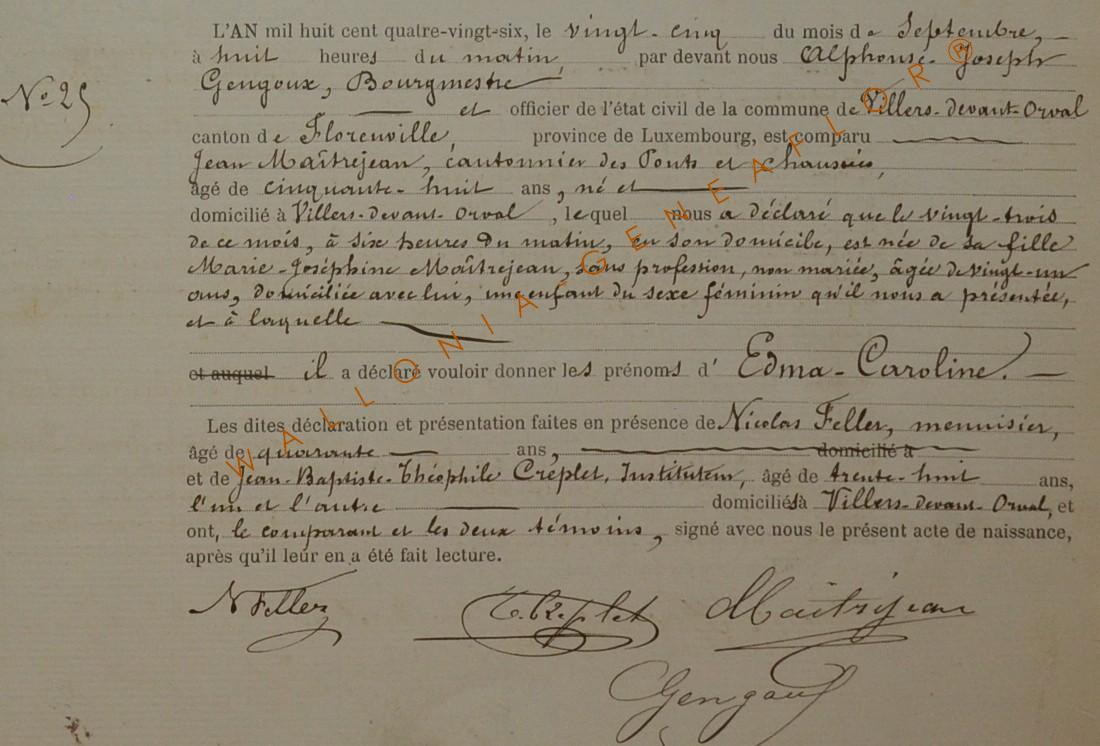 L'AN mil huit cent quatre-vingt-six, le vingt-cinq du mois de Septembre,
à huit heures du matin, par devant nous Alphonse-Joseph
Gengoux, Bourgmestre
N.o 25
et officier de l'état civil de la commune de Villers-devant-Orval
canton de Florenville, province de Luxembourg, est comparu
Jean Maîtrejean, cantonnier des Ponts et chaussées,
âgé de cinquante-huit ans, né et
domicilié à Villers-devant-Orval, lequel nous a déclaré que le vingt-trois
de ce mois, à six heures du matin, en son domicile, est née de sa fille
Marie-Joséphine Maîtrejean, sans profession, non mariée, âgée de vingt-un
ans, domiciliée avec lui, une enfant du sexe féminin qu'il nous a présentée,
et à laquelle
et auquel il a déclaré vouloir donner les prénoms d'Edma-Caroline.
Les dites déclaration et présentation faites en présence de Nicolas Feller, menuisier,
âgé de quarante ans, domicilié à
et de Jean-Baptiste-Théophile Créplet, Instituteur, âgé de trente-huit ans,
l'un et l'autre domiciliés à Villers-devant-Orval, et
ont, le comparant et les deux témoins, signé avec nous le présent acte de naissance,
après qu'il leur en a été fait lecture.
N Feller T. Créplet Maîtrejean
Gengoux
WALLONIA-GENEAFLOR®